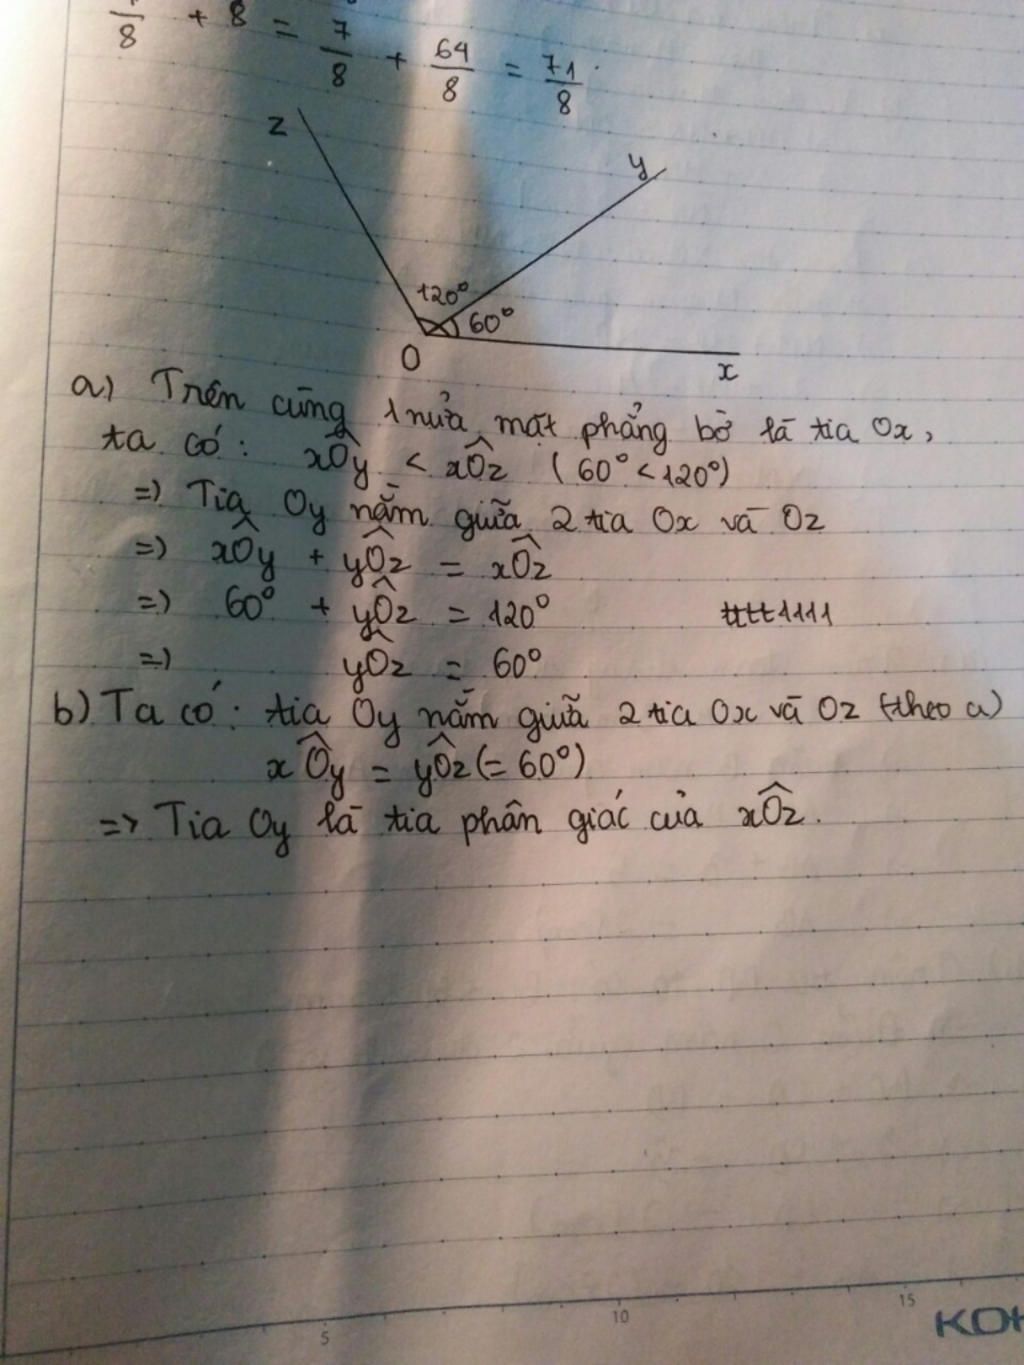 /8 + 8 = 7/8 + 64/8 = 71/8
z
y
120°
60°
O
x
a) Trên cùng 1 nửa mặt phẳng bờ là tia Ox,
ta có: xÔy < xÔz (60° < 120°)
=) Tia Oy nằm giữa 2 tia Ox và Oz
=) xÔy + yÔz = xÔz
=) 60° + yÔz = 120°
tttt1111
=) yÔz = 60°
b) Ta có: tia Oy nằm giữa 2 tia Ox và Oz (theo a)
xÔy = yÔz (= 60°)
=> Tia Oy là tia phân giác của xÔz.
5
10
15